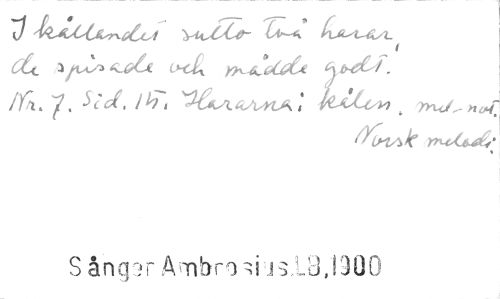 I kållandet sutto två harar,
de spisade och mådde godt.
Nr. 7. Sid. 15. Hararna i kålen. mel-not.
Norsk melodi.
Sånger Ambrosius.LB,1900